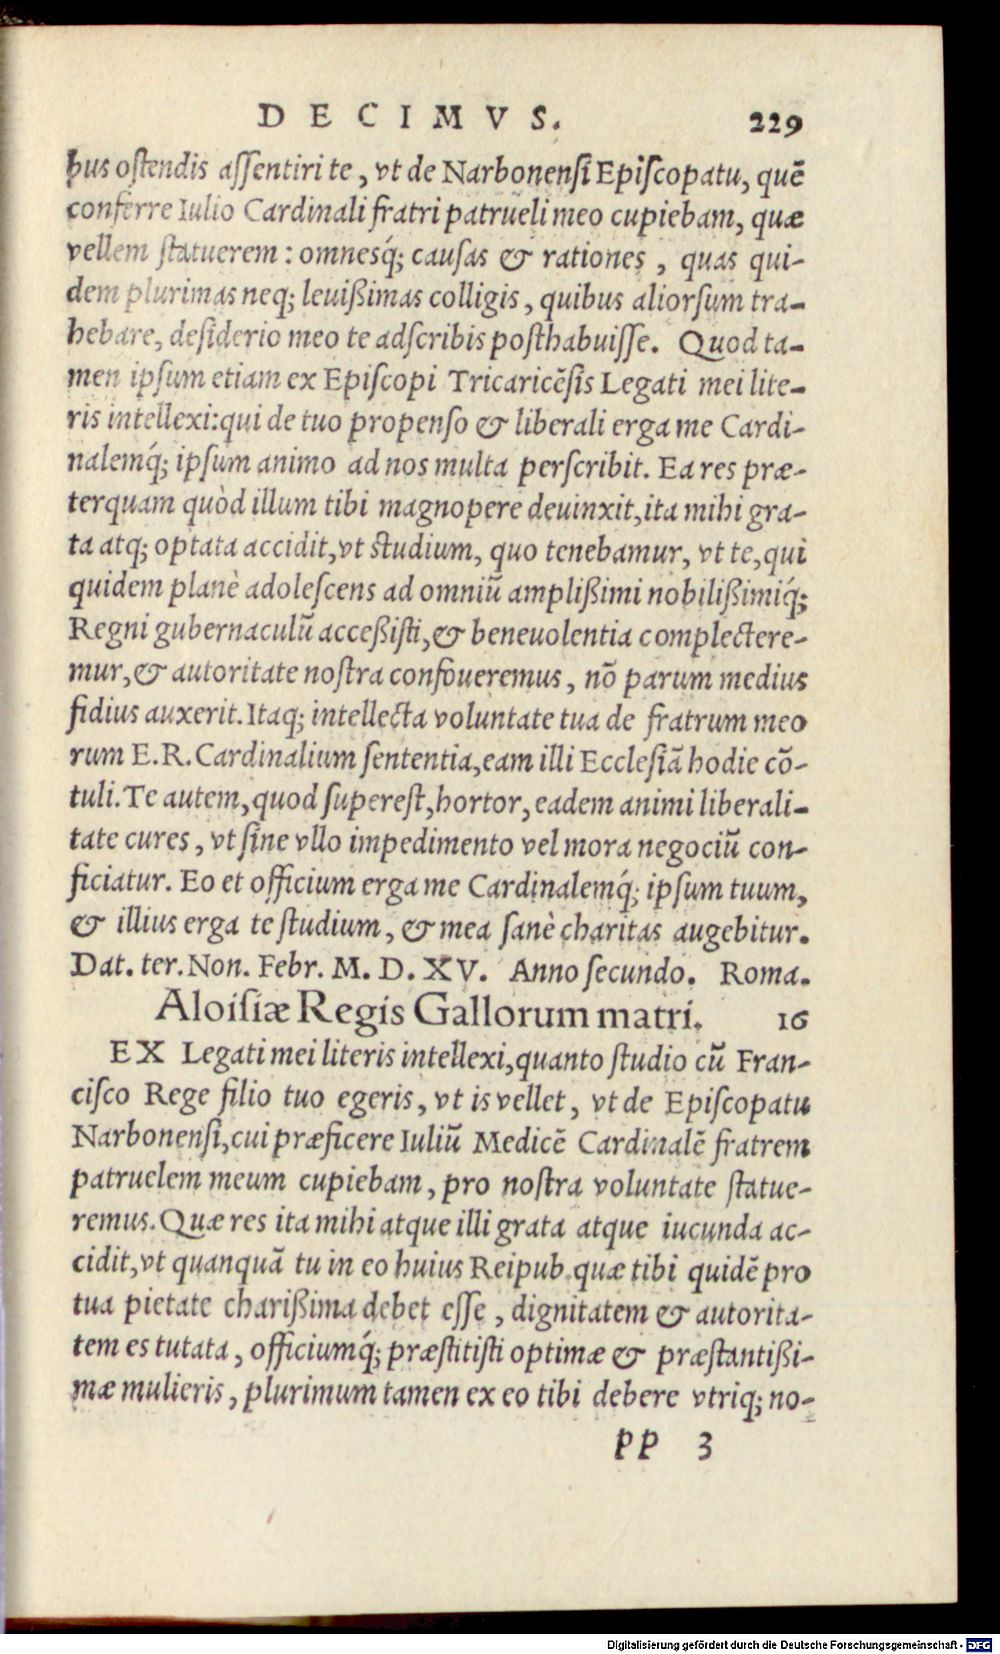 DECIMVS. 229
bus ostendis assentiri te, vt de Narbonensi Episcopatu, quẽ
conferre Iulio Cardinali fratri patrueli meo cupiebam, quæ
vellem statuerem: omnesq́; causas & rationes, quas qui-
dem plurimas neq; leuißimas colligis, quibus aliorsum tra-
hebare, desiderio meo te adscribis posthabuisse. Quod ta-
men ipsum etiam ex Episcopi Tricaricẽsis Legati mei lite-
ris intellexi: qui de tuo propenso & liberali erga me Cardi-
nalemq́; ipsum animo ad nos multa perscribit. Ea res præ-
terquam quòd illum tibi magnopere deuinxit, ita mihi gra-
ta atq; optata accidit, vt studium, quo tenebamur, vt te, qui
quidem planè adolescens ad omniũ amplißimi nobilißimiq́;
Regni gubernaculũ acceßisti, & beneuolentia complectere-
mur, & autoritate nostra confoueremus, nõ parum medius
fidius auxerit. Itaq; intellecta voluntate tua de fratrum meo
rum E. R. Cardinalium sententia, eam illi Ecclesiã hodie cõ-
tuli. Te autem, quod superest, hortor, eadem animi liberali-
tate cures, vt sine vllo impedimento vel mora negociũ con-
ficiatur. Eo et officium erga me Cardinalemq́; ipsum tuum,
& illius erga te studium, & mea sanè charitas augebitur.
Dat. ter. Non. Febr. M. D. XV. Anno secundo. Roma.
Aloisiæ Regis Gallorum matri. 16
EX Legati mei literis intellexi, quanto studio cũ Fran-
cisco Rege filio tuo egeris, vt is vellet, vt de Episcopatu
Narbonensi, cui præficere Iuliũ Medicẽ Cardinalẽ fratrem
patruelem meum cupiebam, pro nostra voluntate statue-
remus. Quæ res ita mihi atque illi grata atque iucunda ac-
cidit, vt quanquã tu in eo huius Reipub. quæ tibi quidẽ pro
tua pietate charißima debet esse, dignitatem & autorita-
tem es tutata, officiumq́; præstitisti optimæ & præstantißi-
mæ mulieris, plurimum tamen ex eo tibi debere vtriq; no-
pp 3
Digitalisierung gefördert durch die Deutsche Forschungsgemeinschaft - DFG